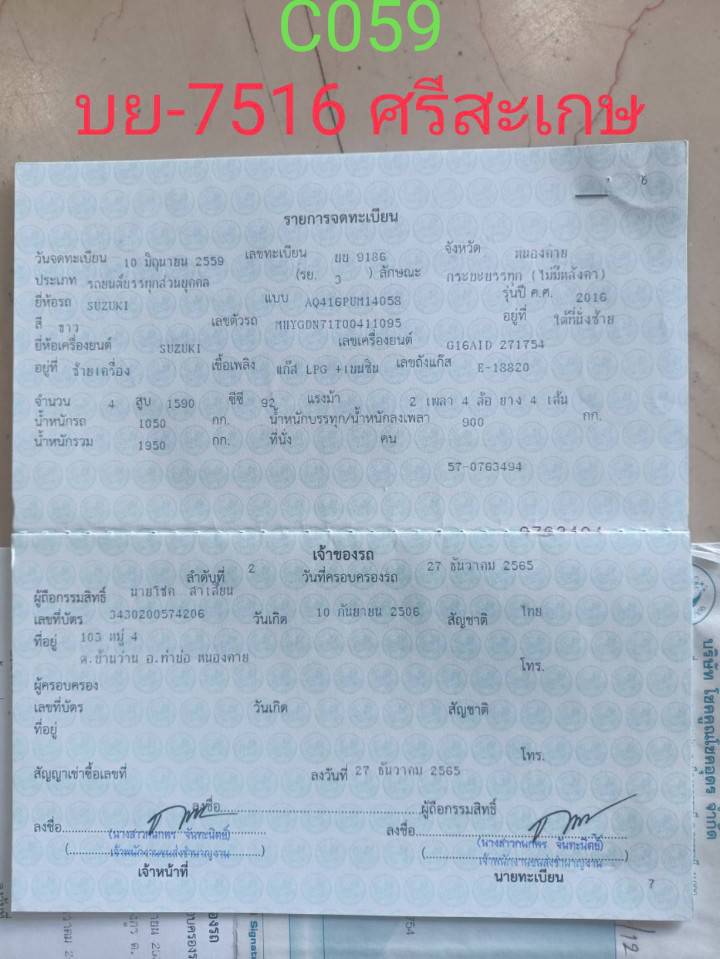 C059
บย-7516 ศรีสะเกษ
6
รายการจดทะเบียน
วันจดทะเบียน 10 มิถุนายน 2559 เลขทะเบียน ยย 9186 จังหวัด หนองคาย
ประเภท รถยนต์บรรทุกส่วนบุคคล (รย. 3 ) ลักษณะ กระบะบรรทุก (ไม่มีหลังคา)
ยี่ห้อรถ SUZUKI แบบ AQ416PUM14058 รุ่นปี ค.ศ. 2016
สี ขาว เลขตัวรถ MHYGDN71T00411095 อยู่ที่ ใต้ที่นั่งซ้าย
ยี่ห้อเครื่องยนต์ SUZUKI เลขเครื่องยนต์ G16AID 271754
อยู่ที่ ซ้ายเครื่อง เชื้อเพลิง แก๊ส LPG +เบนซิน เลขถังแก๊ส E-18820
จำนวน 4 สูบ 1590 ซีซี 92 แรงม้า 2 เพลา 4 ล้อ ยาง 4 เส้น
น้ำหนักรถ 1050 กก. น้ำหนักบรรทุก/น้ำหนักลงเพลา 900 กก.
น้ำหนักรวม 1950 กก. ที่นั่ง คน
57-0763494
เจ้าของรถ
ลำดับที่ 2 วันที่ครอบครองรถ 27 ธันวาคม 2565
ผู้ถือกรรมสิทธิ์ นายโชค สาเสียน
เลขที่บัตร 3430200574206 วันเกิด 10 กันยายน 2506 สัญชาติ ไทย
ที่อยู่ 103 หมู่ 4
ต.บ้านว่าน อ.ท่าบ่อ หนองคาย โทร.
ผู้ครอบครอง
เลขที่บัตร วันเกิด สัญชาติ
ที่อยู่
โทร.
สัญญาเช่าซื้อเลขที่ ลงวันที่ 27 ธันวาคม 2565
ลงชื่อ ผู้ถือกรรมสิทธิ์
ลงชื่อ ลงชื่อ
(นางสาวกนกพร จันทะนิตย์) (นางสาวกนกพร จันทะนิตย์)
เจ้าพนักงานขนส่งชำนาญงาน เจ้าพนักงานขนส่งชำนาญงาน
เจ้าหน้าที่ นายทะเบียน
7
บริษัท โชคคูณโชคอุดร จำกัด